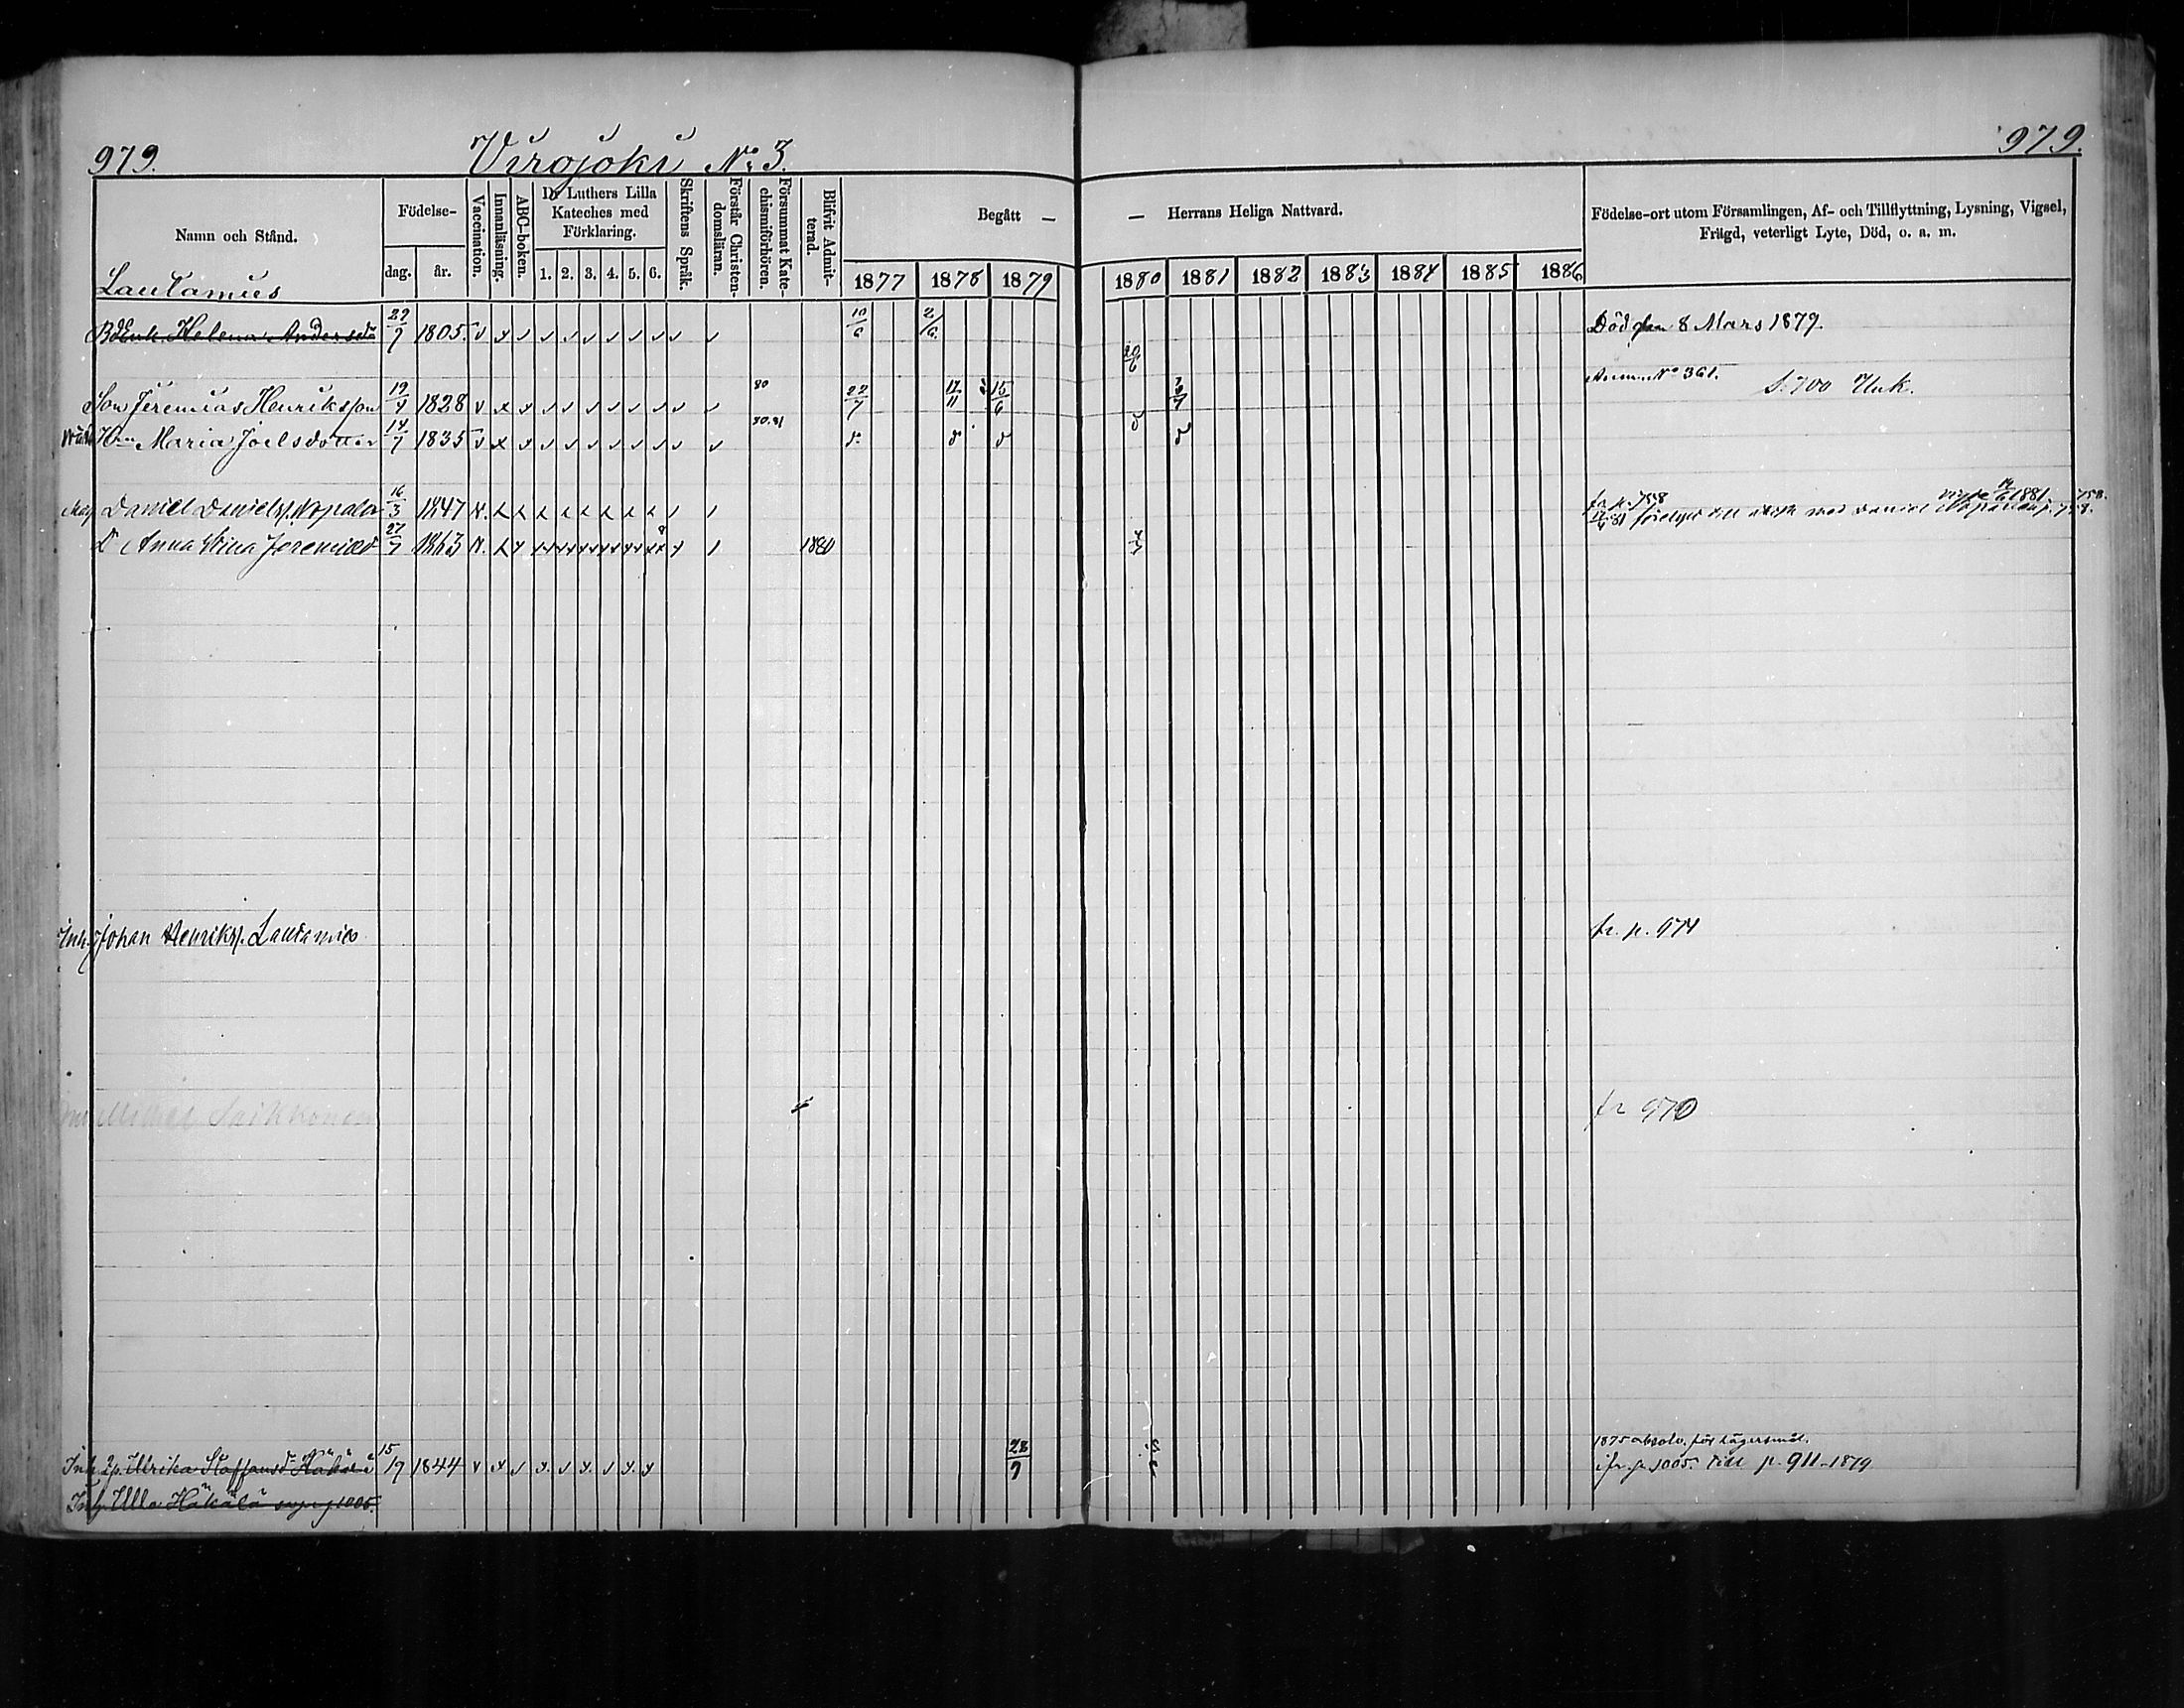 979. Virojoki No 3. 979.
Namn och Stånd.
Födelse-
dag. år.
Vaccination.
Innanläsning.
ABC-boken.
Dr Luthers Lilla
Kateches med
Förklaring.
1. 2. 3. 4. 5. 6.
Skriftens Språk.
Förstår Christen-
domsläran.
Försummat Kate-
chismiförhören.
Blifvit Admit-
terad.
Begått — — Herrans Heliga Nattvard.
1877 1878 1879 1880 1881 1882 1883 1884 1885 1886
Födelse-ort utom Församlingen, Af- och Tillflyttning, Lysning, Vigsel,
Frägd, veterligt Lyte, Död, o. a. m.
Lautamies
Enk. Helena Andersdr 29/7 1805. v x v v v v v v v v v 10/6 2/6 Död den 8 Mars 1879.
Son Jeremias Henriksson 19/4 1828 v x x v v v v v v v v 80 22/7 17/11 15/6 20/6 3/7 No 361. S. 700 Unk.
Hu Maria Joelsdotter 14/7 1835 v x v v v v v v v v v 80.81 do do do do do
Måg Daniel Daniels. Nopala 16/3 1847 fr p. 758 1881. 758.
D Anna Stina Jeremiasd 27/9 1863 8 1880 med Daniel
Inh. Johan Henriks. Lautamies fr. p. 974
Saikkonen fr 970
Inh. Ulrika Staffansdr Häkälä 15/9 1844 v x v x. v x. v x. x 28/9 1875 absolv. för lägersmål.
fr. p. 1005. till p. 911-1879
Inh. Ulla Häkälä 1005.